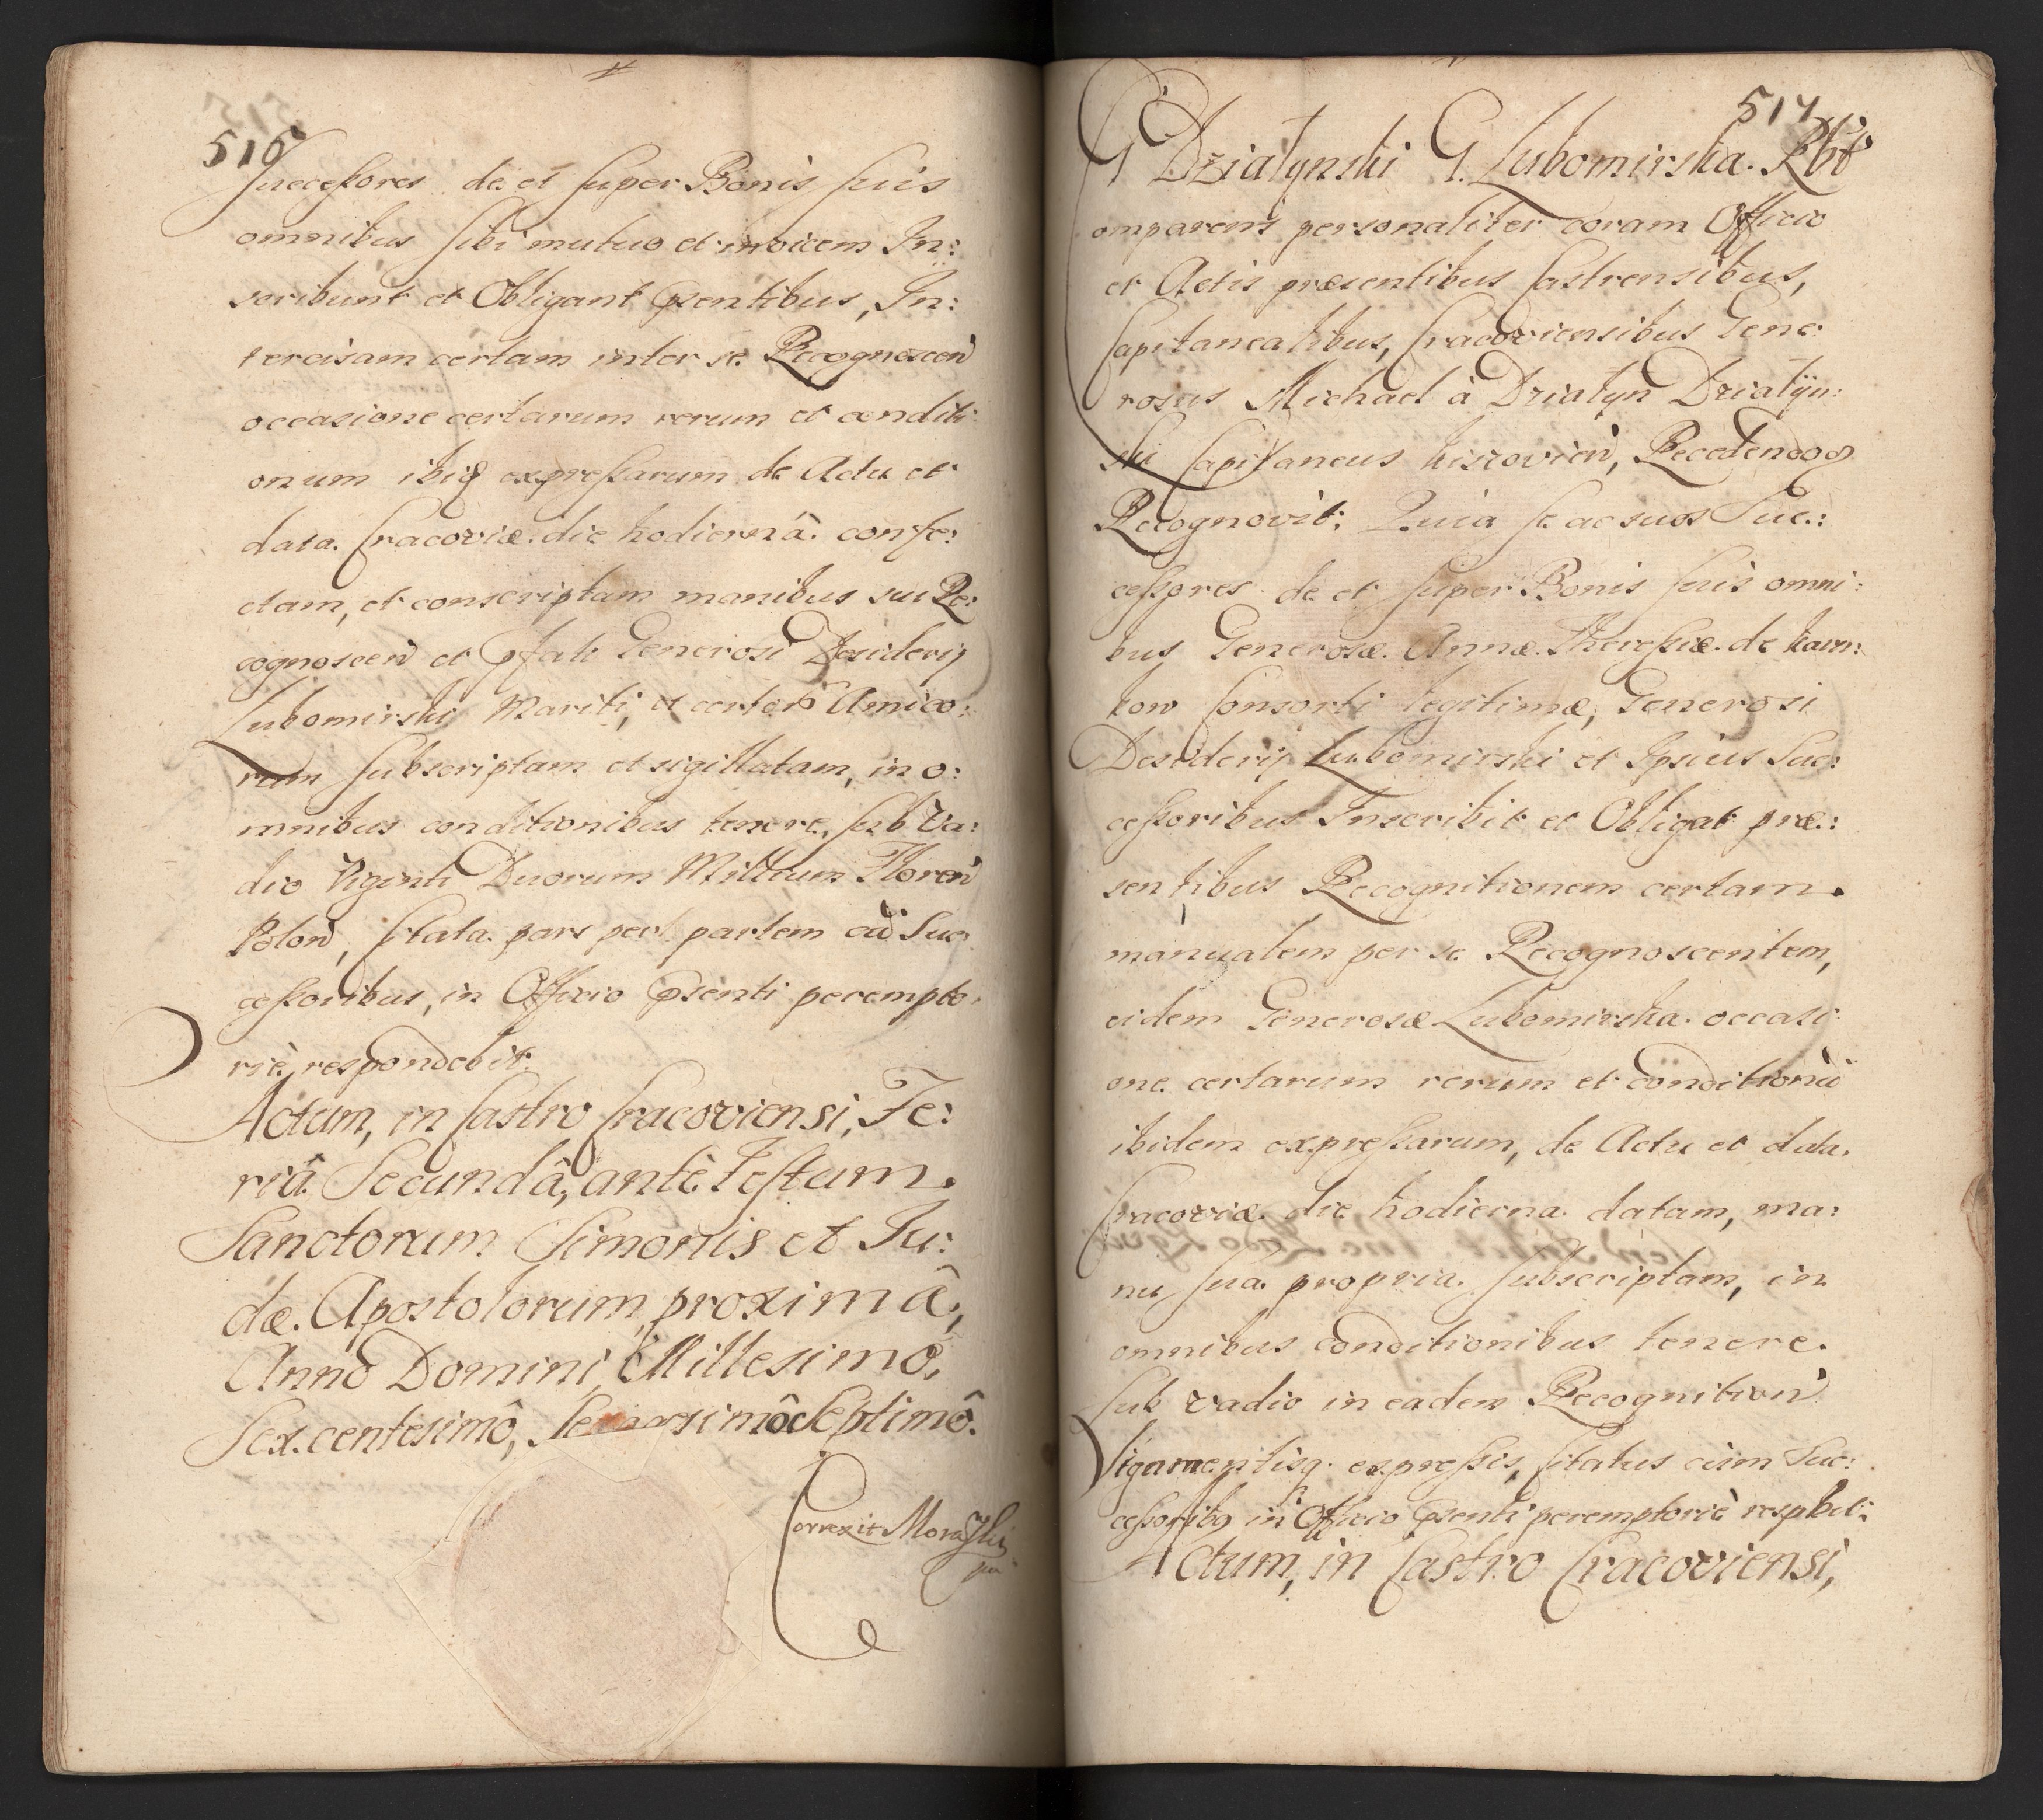 516
successores de et super Bonis suis
omnibus sibi mutuo et invicem In:
scribunt et Obligant psentibus, In:
tercisam certam inter se Recognoscen
occasione certarum rerum et conditi
onum ibiq expressarum de Actu et
data Cracoviæ die hodiernâ confe:
ctam, et conscriptam manibus sui Re:
cognoscen et pfati Generosi Desiderij
Lubomirski Mariti, et certorũ Amico:
rum subscriptam et sigillatam, in o:
mnibus conditionibus tenere, sub Va:
dio Viginti Duorum Millium Floren
Polon, Citata pars per partem cũ Suc
cessoribus, in Officio psenti perempto:
riè respondebit.
Actum, in Castro Cracoviensi, Fe:
riâ Secundâ, antè Festum
Sanctorum Simonis et Ju:
dæ Apostolorum, proximâ,
Annò Domini, Millesimô,
Sexcentesimô, septimô.
Correxit
517
G Działynski G. Lubomirska. Rbt
omparens personaliter coram Officio
et Actis præsentibus Castrensibus,
Capitanealibus, Cracoviensibus Gene:
rosus Michael à Działyn Działyn:
ski Capitaneus kiszovien,
Recognovit; Quia se ac suos Suc:
cessores de et super Bonis suis omni:
bus Generosæ Annæ Theressiæ de
kow Consorti legitimæ, Generosi
Desiderij Lubomirski et Ipsius Suc:
cessoribus Inscribit et Obligat præ:
sentibus Recognitionem certam
manualem per se Recognoscentem,
eidem Generosæ Lubomirska occasi
one certarum rerum et conditionũ
ibidem expressarum, de Actu et data
Cracoviæ die hodierna datam, ma:
nu sua propria subscriptam, in
omnibus conditionibus tenere.
sub vadio in eadem Recognition
Ligamentisq. expressis, Citatus cum Suc:
cessoribq in Officio psenti peremptoriè respbit:
Actum, in Castro Cracoviensi,